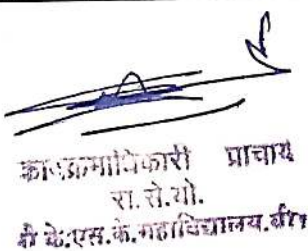 कार्यक्रमाधिकारी प्राचार्य
रा.से.यो.
के.एस.के.महाविद्यालय.बीड